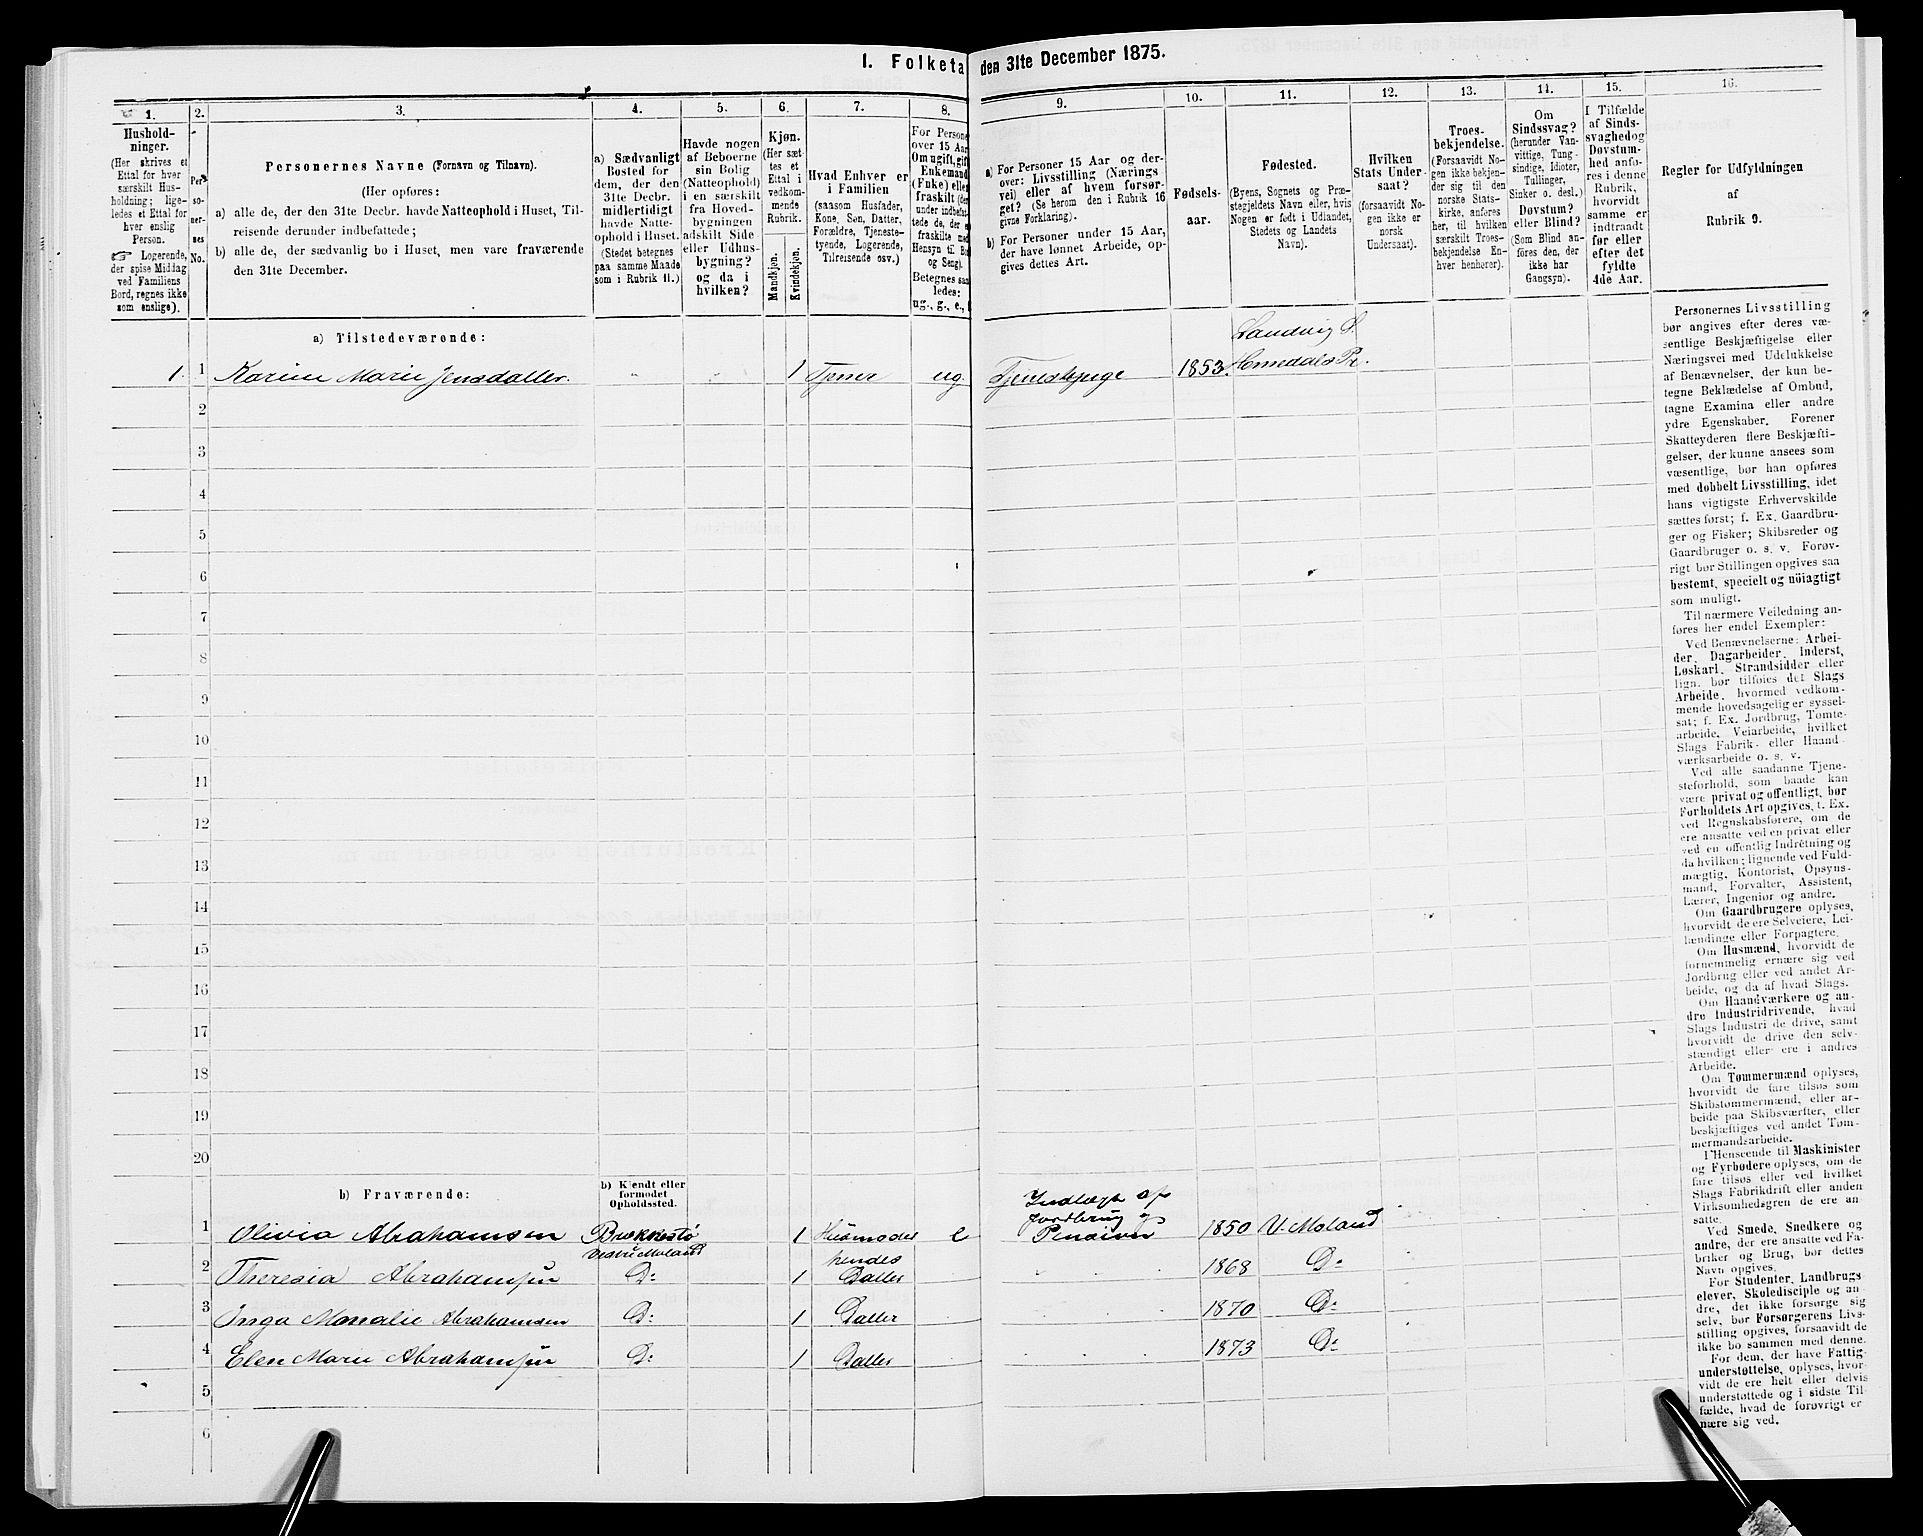 I. Folketal den 31te December 1875.
1.
Hushold-
ninger.
(Her skrives et
Ettal for hver
særskilt Hus-
holdning; lige-
ledes et Ettal for
hver enslig
Person.
☞ Logerende,
der spise Middag
ved Familiens
Bord, regnes ikke
som enslige).
2.
Per-
so-
ner-
nes
No.
3.
Personernes Navne (Fornavn og Tilnavn).
(Her opføres:
a) alle de, der den 31te Decbr. havde Natteophold i Huset, Til-
reisende derunder indbefattede;
b) alle de, der sædvanlig bo i Huset, men vare fraværende
den 31te December.
4.
a) Sædvanligt
Bosted for
dem, der den
31te Decbr.
midlertidigt
havde Natte-
ophold i Huset.
(Stedet betegnes
paa samme Maade
som i Rubrik 11.)
5.
Havde nogen
af Beboerne
sin Bolig
(Natteophold)
i en særskilt
fra Hoved-
bygningen
adskilt Side
eller Udhus-
bygning?
og da i
hvilken?
6.
Kjøn.
(Her sæt-
tes et
Ettal i
vedkom-
mende
Rubrik.
Mandkjøn.
Kvindekjøn.
7.
Hvad Enhver er
i Familien
(saasom Husfader,
Kone, Søn, Datter,
Forældre, Tjeneste-
tyende, Logerende,
Tilreisende osv.)
8.
For Persone
over 15 Aar
Om ugift, gift
Enkemand
(Enke) eller
fraskilt (der
under indbefat-
tede de, der
fraskilte med
Hensyn til Bo
og Seng).
Betegnes saa
ledes:
ug., g., e., f.
9.
a) For Personer 15 Aar og der-
over: Livsstilling (Nærings
vei) eller af hvem forsør-
get? (Se herom den i Rubrik 16
givne Forklaring).
b) For Personer under 15 Aar,
der have lønnet Arbeide, op-
gives dettes Art.
10.
Fødsels-
aar.
11.
Fødested.
(Byens, Sognets og Præ-
stegjeldets Navn eller, hvis
Nogen er født i Udlandet,
Stedets og Landets
Navn).
12.
Hvilken
Stats Under-
saat?
(forsaavidt No-
gen ikke er
norsk
Undersaat).
13.
Troes-
bekjendelse.
(Forsaavidt No-
gen ikke bekjen-
der sig til den
norske Stats-
kirke, anføres
her, til hvilken
særskilt Troes-
bekjendelse En-
hver henhører).
14.
Om
Sindssvag?
(herunder Van-
vittige, Tung-
sindige, Idioter,
Tullinger,
Sinker o. desl.)
Døvstum?
eller Blind?
(Som Blind an-
føres den, der
ikke har
Gangsyn).
15.
I Tilfælde
af Sinds-
svaghed og
Døvstum-
hed anfø-
res i denne
Rubrik,
hvorvidt
samme er
indtraadt
før eller
efter det
fyldte
4de Aar.
16.
Regler for Udfyldningen
af
Rubrik 9.
a) Tilstedeværende:
Landvig S.
1. 1 Karine Marie Jensdatter. " " 1 Tjener ug. Tjenestepige 1853. Homedals Pr.
2
3
4
5
6
7
8
9
10
11
12
13
14
15
16
17
18
19
20
b) Fraværende:
b) Kjendt eller
formodet
Opholdssted.
Indlagt af
Jordbrug og
1 Olivia Abrahamsen 1 Husmoder e Pension 1850 V. Moland
Vestre Moland
hendes
2 Theresia Abrahamsen Do 1 Datter 1868 Do
3 Inga Abrahamsen Do 1 Datter 1870 Do
4 Elen Marie Abrahamsen Do 1 Datter 1873 Do
5
6
Personernes Livsstilling
bør angives efter deres væ-
sentlige Beskjæftigelse eller
Næringsvei med Udelukkelse
af Benævnelser, der kun be-
tegne Beklædelse af Ombud,
tagne Examina eller andre
ydre Egenskaber. Forener
Skatteyderen flere Beskjæfti-
gelser, der kunne ansees som
væsentlige, bør han opføres
med dobbelt Livsstilling, idet
hans vigtigste Erhvervskilde
sættes først; f. Ex. Gaardbru-
ger og Fisker; Skibsreder og
Gaardbruger o. s. v. Forøv-
rigt bør Stillingen opgives saa
bestemt, specielt og nöiagtigt
som muligt.
Til nærmere Veiledning an-
føres her endel Exempler:
Ved Benævnelserne: Arbei-
der, Dagarbeider, Inderst,
Løskarl, Strandsidder eller
lign. bør tilføies det Slags
Arbeide, hvormed vedkom-
mende hovedsagelig er syssel-
sat; f. Ex. Jordbrug, Tomte-
arbeide, Veiarbeide, hvilket
Slags Fabrik- eller Haand-
værksarbeide o. s. v.
Ved alle saadanne Tjene-
steforhold, som baade kan
være privat og offentligt, bør
Forholdets Art opgives, t. Ex.
ved Regnskabsførere, om de
ere ansatte ved en privat eller
ved en offentlig Indretning og
da hvilken; lignende ved Fuld-
mægtig, Kontorist, Opsyns-
mand, Forvalter, Assistent,
Lærer, Ingeniør og andre.
Om Gaardbrugere oplyses,
hvorvidt de ere Selveiere, Lei-
lændinge eller Forpagtere.
Om Husmænd, hvorvidt de
fornemmelig ernære sig ved
Jordbrug eller ved andet Ar-
beide, og da af hvad Slags.
Om Haandværkere og an-
dre Industridrivende, hvad
Slags Industri de drive, samt
hvorvidt de drive den selv-
stændigt eller ere i andres
Arbeide.
Om Tømmermænd oplyses,
hvorvidt de fare tilsøs som
Skibstømmermænd, eller ar-
beide paa Skibsværfter, eller
beskjæftiges ved andet Tøm-
mermandsarbeide.
I Henseende til Maskinister
og Fyrbødere oplyses, om de
fare tilsøs eller ved hvilket
Slags Fabrikdrift eller anden
Virksomhedsgren de ere an-
satte.
Ved Smede, Snedkere og
andre, der ere ansatte ved Fa-
briker og Brug, bør dettes
Navn opgives.
For Studenter, Landbrugs
elever, Skoledisciple og an-
dre, det ikke forsørge sig
selv, bør Forsørgerens Livs-
stilling opgives, forsaavidt de
ikke bo sammen med denne.
For dem, der have Fattig-
understøttelse, oplyses, hvor-
vidt de ere helt eller delvis
understøttede og i sidste Til-
fælde, hvad de forøvrigt er
nære sig ved.